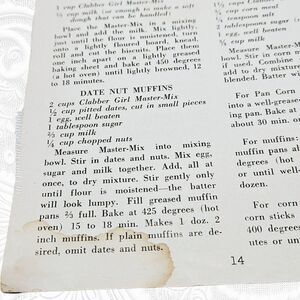 1 cup Clabber Girl Master-Mix
⅓ cup milk (or enough to make a soft
dough that can be handled)
Place the Master-Mix in a mixing
bowl and add the milk. Mix lightly
just until the flour is moistened, turn
onto a lightly floured board, knead
and cut the biscuits. Place them
one inch apart on a lightly greased
baking sheet and bake at 450 degrees
(a hot oven) until lightly browned, 12
to 18 minutes.
DATE NUT MUFFINS
2 cups Clabber Girl Master-Mix
½ cup pitted dates, cut in small pieces
1 egg, well beaten
1 tablespoon sugar
⅔ cup milk
¼ cup chopped nuts
Measure Master-Mix into mixing
bowl. Stir in dates and nuts. Mix egg,
sugar and milk together. Add, all at
once, to dry mixture. Stir gently only
until flour is moistened—the batter
will look lumpy. Fill greased muffin
pans ⅔ full. Bake at 425 degrees (hot
oven) 15 to 18 min. Makes 1 doz. 2
inch muffins. If plain muffins are de-
sired, omit dates and nuts.
1½ cups
meal
teaspoon
tablespoons sugar
egg, well
cup milk
Measure Master
bowl. Stir in corn m
if used. Combine
add to dry mixture
blended. Batter wi
For Pan Corn
into a well-grease
ing pan. Bake at
about 30 min. or
For muffins:
muffin pans al
degrees (hot o
utes or until
For corn
corn sticks
400 degrees
utes or un
14